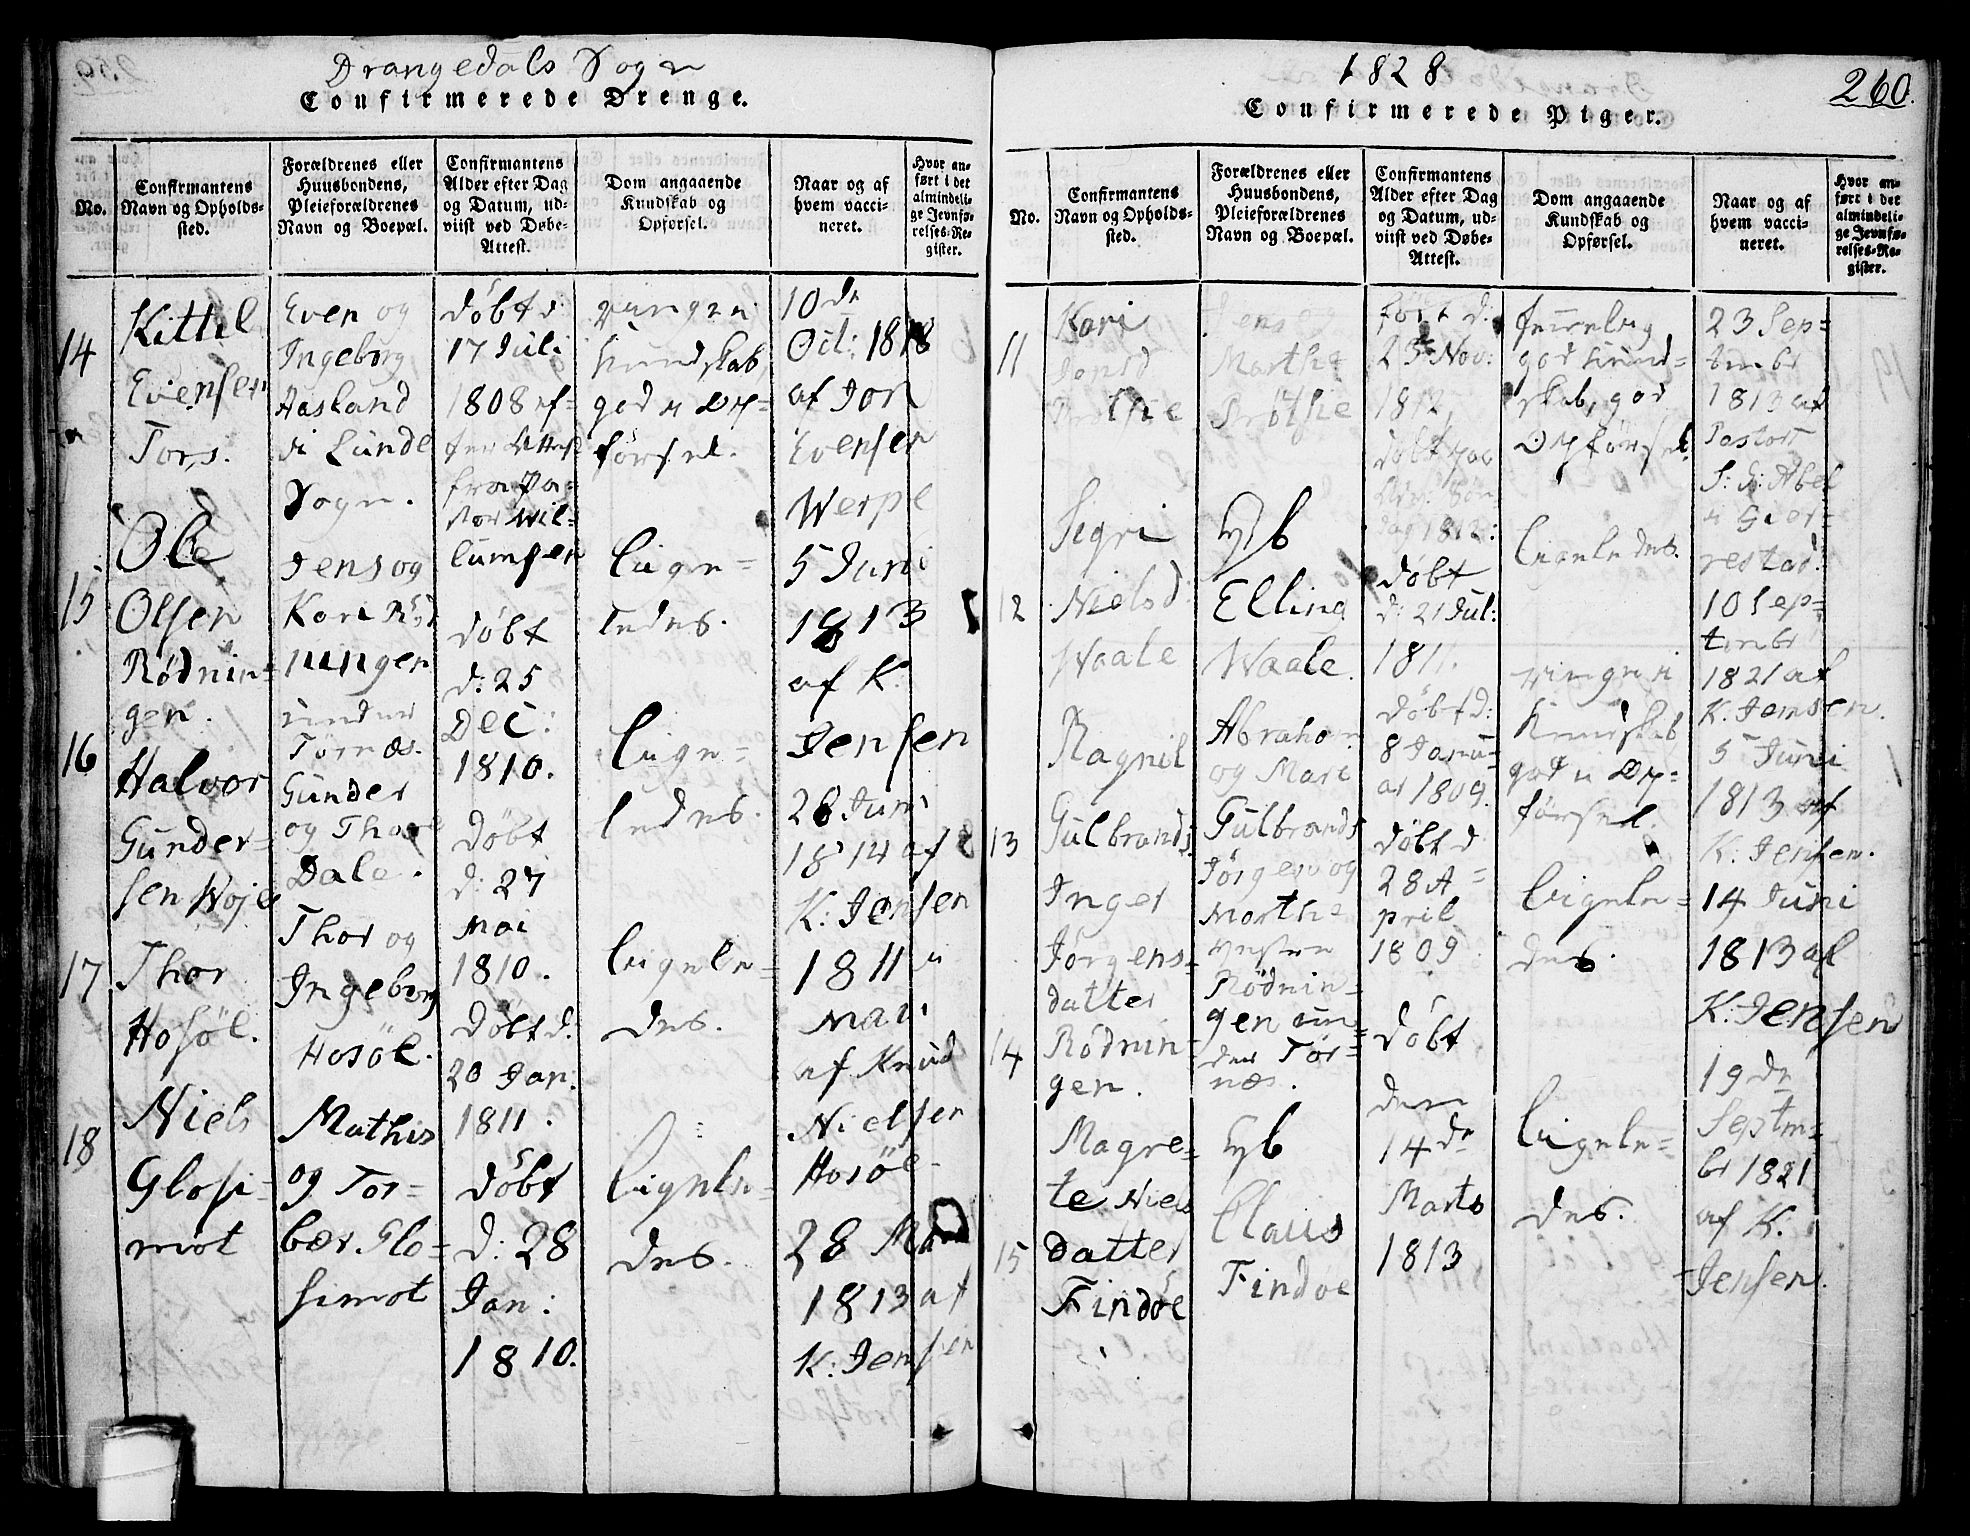 Drangedals Sogn
Confirmerede Drenge.
No.
Confirmantens Navn og Opholds-sted.
Forældrenes eller Huusbondens, Pleieforældrenes Navn og Boepæl.
Confirmantens Alder efter Dag og Datum, ud-viist ved Døbe-Attest.
Dom angaaende Kundskab og Opførsel.
Naar og af hvem vacci-neret.
Hvor an-ført i det almindeli-ge Jevnfø-relses-Re-gister.
14
Kittil
Evensen
Tors.
Even og
Ingeborg
Aasland
i Lunde
Sogn.
døbt d:
17 Juli
1808 ef-
ter Attest
fra Pa-
stor Wil-
lumsen
ringe
Kundskab,
god Op-
førsel.
10de
Oct: 1818
af Jon
Evensen
Werpe
15
Ole
Olsen
Rødnin-
gen.
Jens og
Kari Rød
ningen
under
Tørnæs.
døbt
d: 25
Dec:
1810.
ligele=
ledes.
5 Juni
1813
af K.
Jensen
16
Halvor
Gunder-
sen Woje
Gunder
og Thore
Dale.
døbt
d: 27
Mai
1810.
lige=
ledes.
26 Juni
1814 af
K: Jensen
17
Thor
Hosøl.
Thor og
Ingeborg
Hosøl.
Døbt d:
20 Jan:
1811.
ligele=
des.
1811 i
Mai
af Knud
Nielsen
Hosøl
18
Niels
Glosi-
mot
Mathis
og Tor=
bær Glo=
simot
døbt
d: 28
Jan:
1810.
ligele=
des.
28 Mai
1813 af
K: Jensen
1828
260.
Confirmerede Piger.
No.
Confirmantens Navn og Opholds-sted.
Forældrenes eller Huusbondens, Pleieforældrenes Navn og Boepæl.
Confirmantens Alder efter Dag og Datum, ud-viist ved Døbe-Attest.
Dom angaaende Kundskab og Opførsel.
Naar og af hvem vacci-neret.
Hvor an-ført i det almindeli-ge Jevnfø-relses-Re-gister.
11
Kari
Jensd
Brøtsie
Jens og
Marthe
Brøtsie
født d:
25 Nov:
1812,
døbt paa
Søn
dag 1812:
god Kund-
skab, god
Opførsel.
23 Sep=
tember
1813 af
Pastor
S: Abel
i Gier-
restad.
12
Sigri
Nielsd
Waale
Elling
Waale.
døbt
d: 21 Jul:
1811.
ligeledes.
10 Sep=
tember
1821 af
K. Jensen.
13
Ragnil
Gulbrands
Abraham
og Mari
Gulbrands
døbt d:
8 Janu=
ar 1809.
ringe
Kundskab
god Op=
førsel.
5 Juni
1813 af
K: Jensen.
14
Inger
Jørgens-
datter
Rødnin-
gen.
Jørgen og
Marthe
Rødnin-
gen un=
der Tør-
næs.
døbt d
28 A=
pril
1809
ligele=
des.
14 Juni
1813 af
K: Jensen
15
Magre=
te Niels
datter
Findøe
Claus
Findøe
døbt
den
14de
Marts
1813
ligele=
des.
19de
Septem=
br 1821
af K.
Jensen.